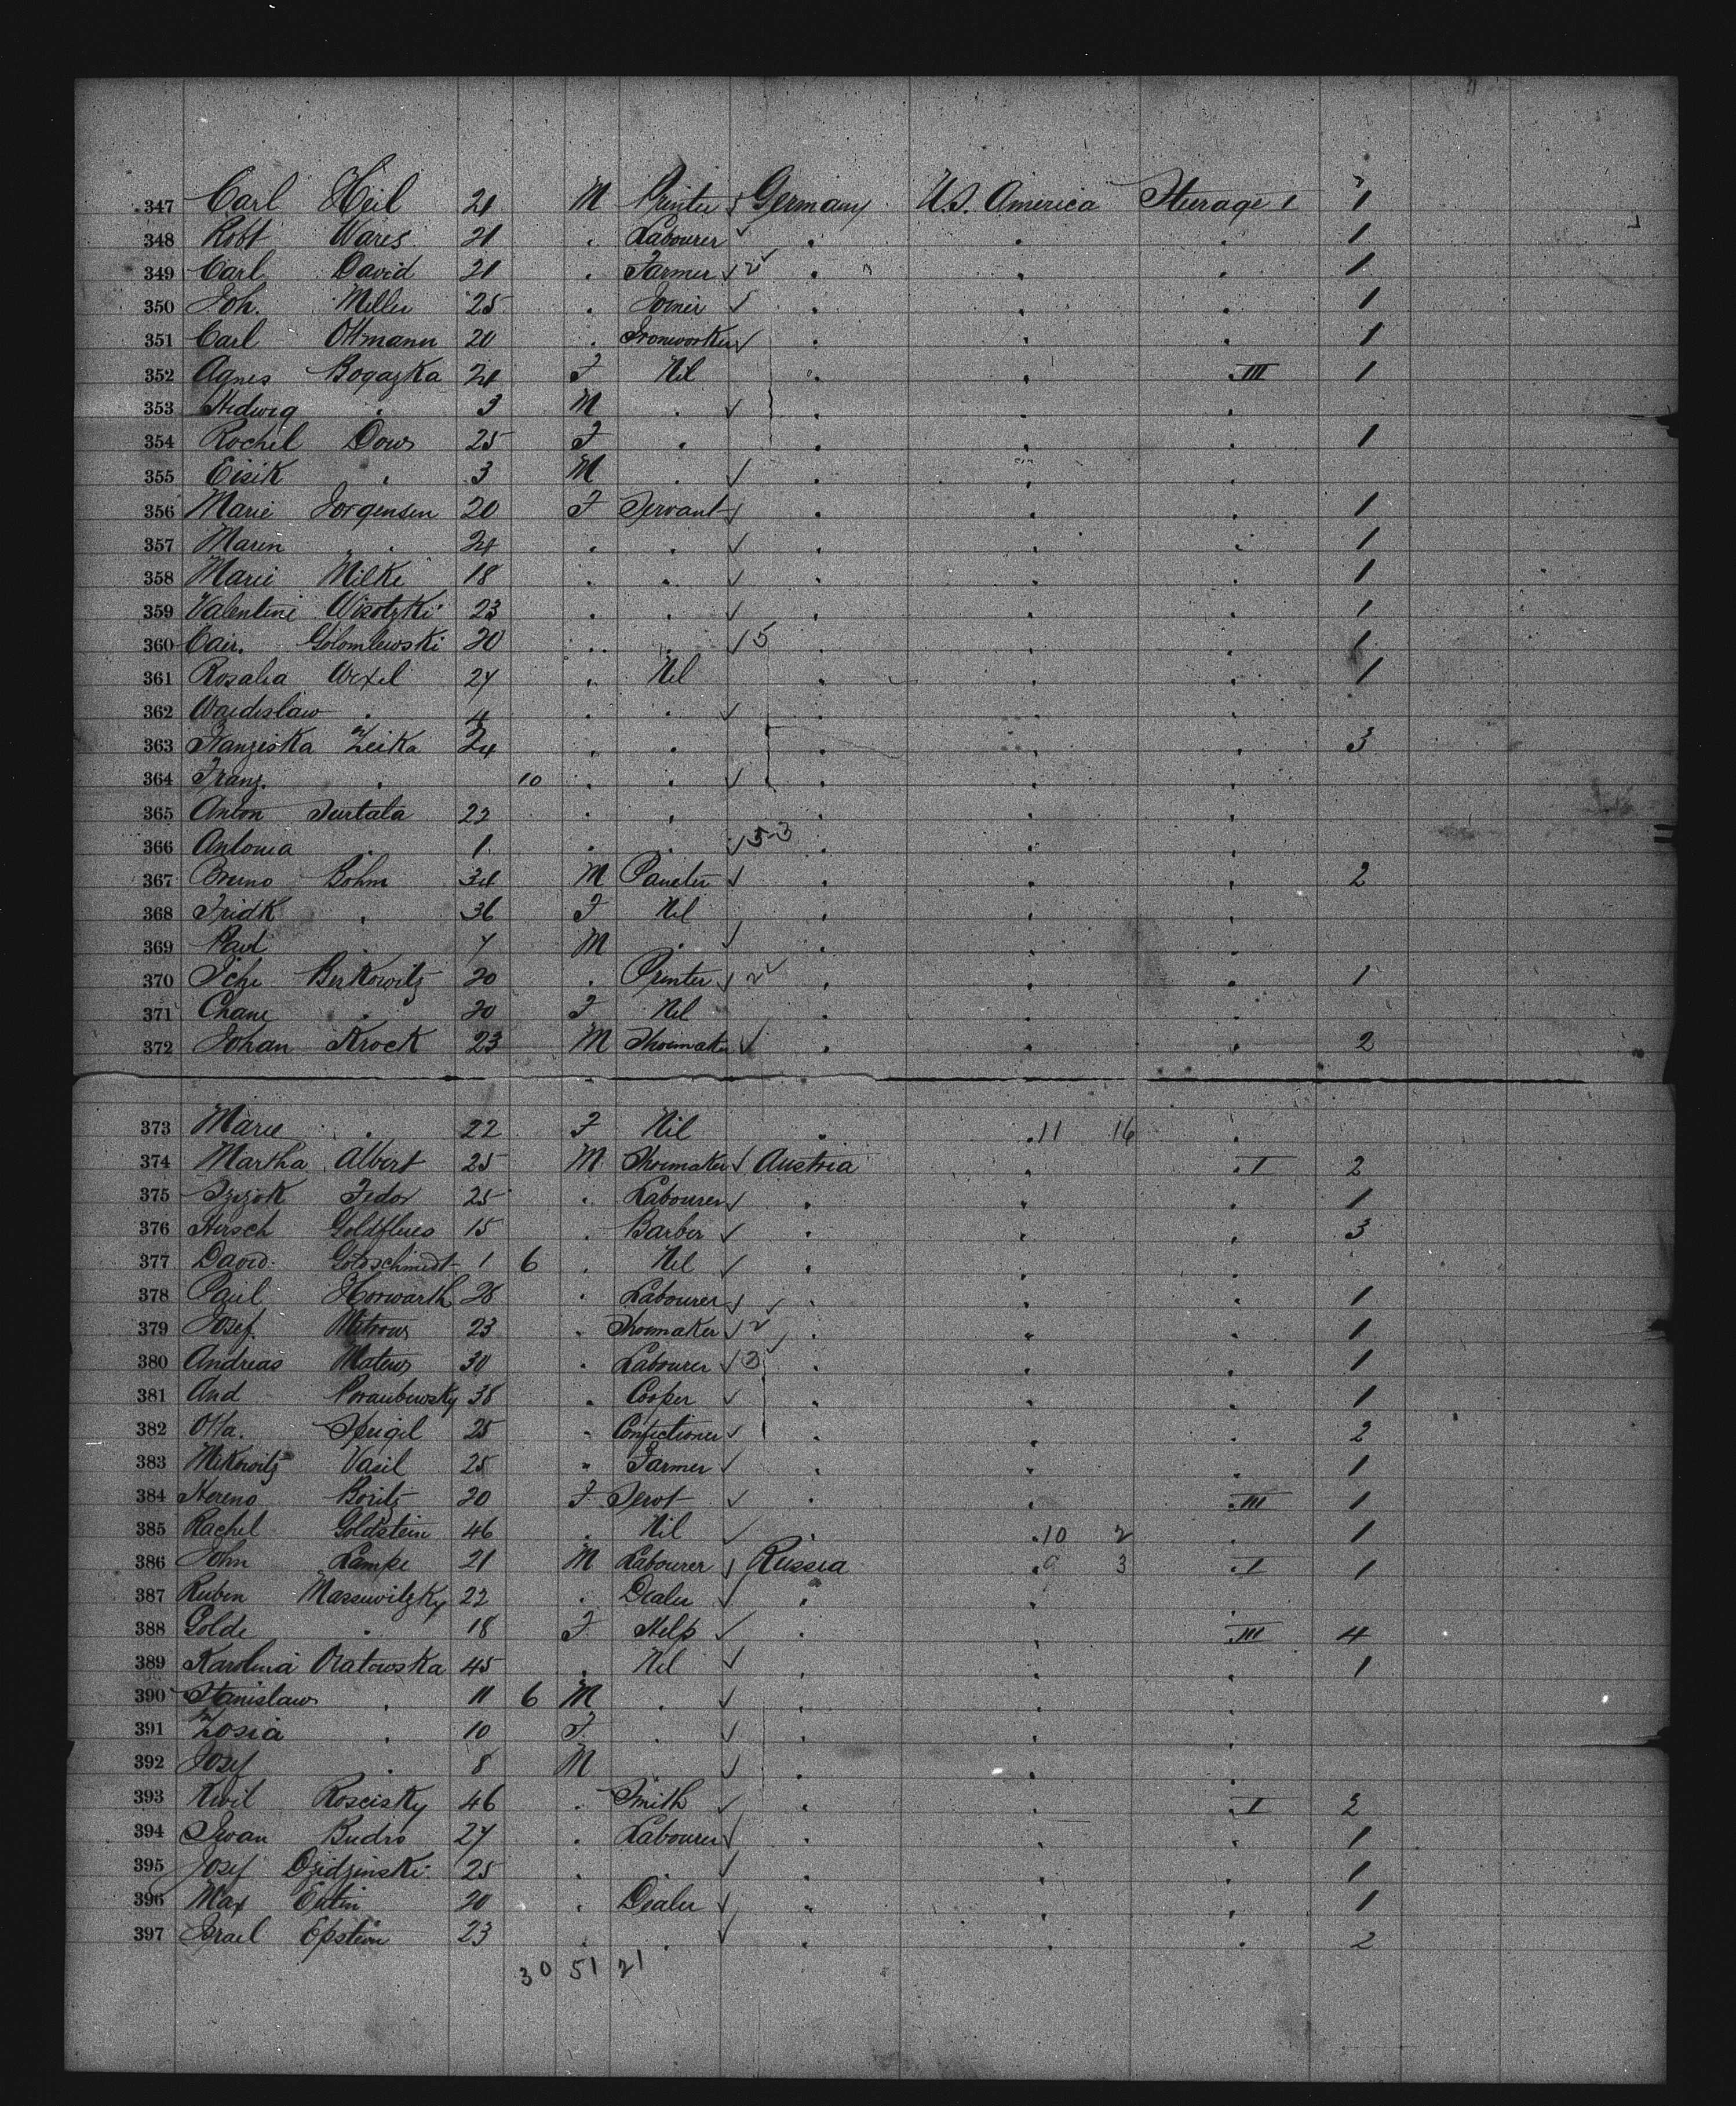 347 Carl Heil 21 M Printer √ Germany U.S. America Sturage I 1
348 Robt Wares 21 . Labourer √ . . . 1
349 Carl David 21 . Farmer √ 2 √ . . . 1
350 Joh. Miller 25 . Joiner √ . . . 1
351 Carl Ottmann 20 . Ironworker √ . . . 1
352 Agnes Bogazka 24 F Nil . . . III 1
353 Hedwig . 3 M . √ . . .
354 Rochel Dows 25 F . . . . 1
355 Eisik . 3 M . √ . . .
356 Marie Jorgensen 20 F Servant √ . . . 1
357 Maren . 24 . . √ . . . 1
358 Marie Milke 18 . . √ . . . 1
359 Valentine Wisotzki 23 . . √ . . . 1
360 Golomlewski 20 . . √ 5 . . . 1
361 Rosalia Wexel 24 . Nil . . . 1
362 Wardislaw . 4 . . √ . . .
363 Franziska Zeika 24 . . . . . 3
364 Franz . 10 . . √ . . .
365 Anton Turtala 22 . . . . .
366 Antonia . 1 . . √ 5-3 . . .
367 Bruno Bohm 34 M √ . . . 2
368 Fridk . 36 F Nil . . .
369 Paul . 7 M . √ . . .
370 Berkowitz 20 . Printer √ 2 √ . . . 1
371 Chane . 20 F Nil . . .
372 Johan Krock 23 M Shoemaker √ . . . 2
373 Marie . 22 F Nil . . 11 16 .
374 Martha Albert 25 M Shoemaker √ Austria . . I 2
375 Fedor 25 . Labourer √ . . . 1
376 Hersch Goldflies 15 . Barber √ . . . 3
377 David Goldschmidt 1 6 . Nil √ . . .
378 Paul Horwarth 28 . Labourer √ . . . 1
379 Josef Mitrows 23 . Shoemaker √ 2 √ . . . 1
380 Andreas Matews 30 . Labourer √ 3 . . . 1
381 And Poraubewsky 38 . Cooper √ . . . 1
382 Spigel 25 . Confictioner √ . . . 2
383 Mikowitz Vasil 25 " Farmer √ . . . 1
384 Boritz 20 F Servt √ . . . III 1
385 Rachel Goldstein 46 . Nil √ . . 10 2 . 1
386 John Lampe 21 M Labourer √ Russia . 9 3 . I 1
387 Ruben Massewitzky 22 . Dealer √ . . .
388 Golde . 18 F Help √ . . . III 4
389 Karolina Oratowska 45 . Nil √ . . . 1
390 Stanislaw . 11 6 M . √ . . .
391 Zosia . 10 F . √ . . .
392 Josef . 8 M √ . . .
393 Roscisky 46 . Smith √ . . . I 2
394 Iwan Budro 27 . Labourer √ . . . 1
395 Josef Dzidzinski 25 . . √ . . . 1
396 Max Eutin 20 . Dealer √ . . . 1
397 Israel Epstein 23 . . √ . . . 2
30 51 21